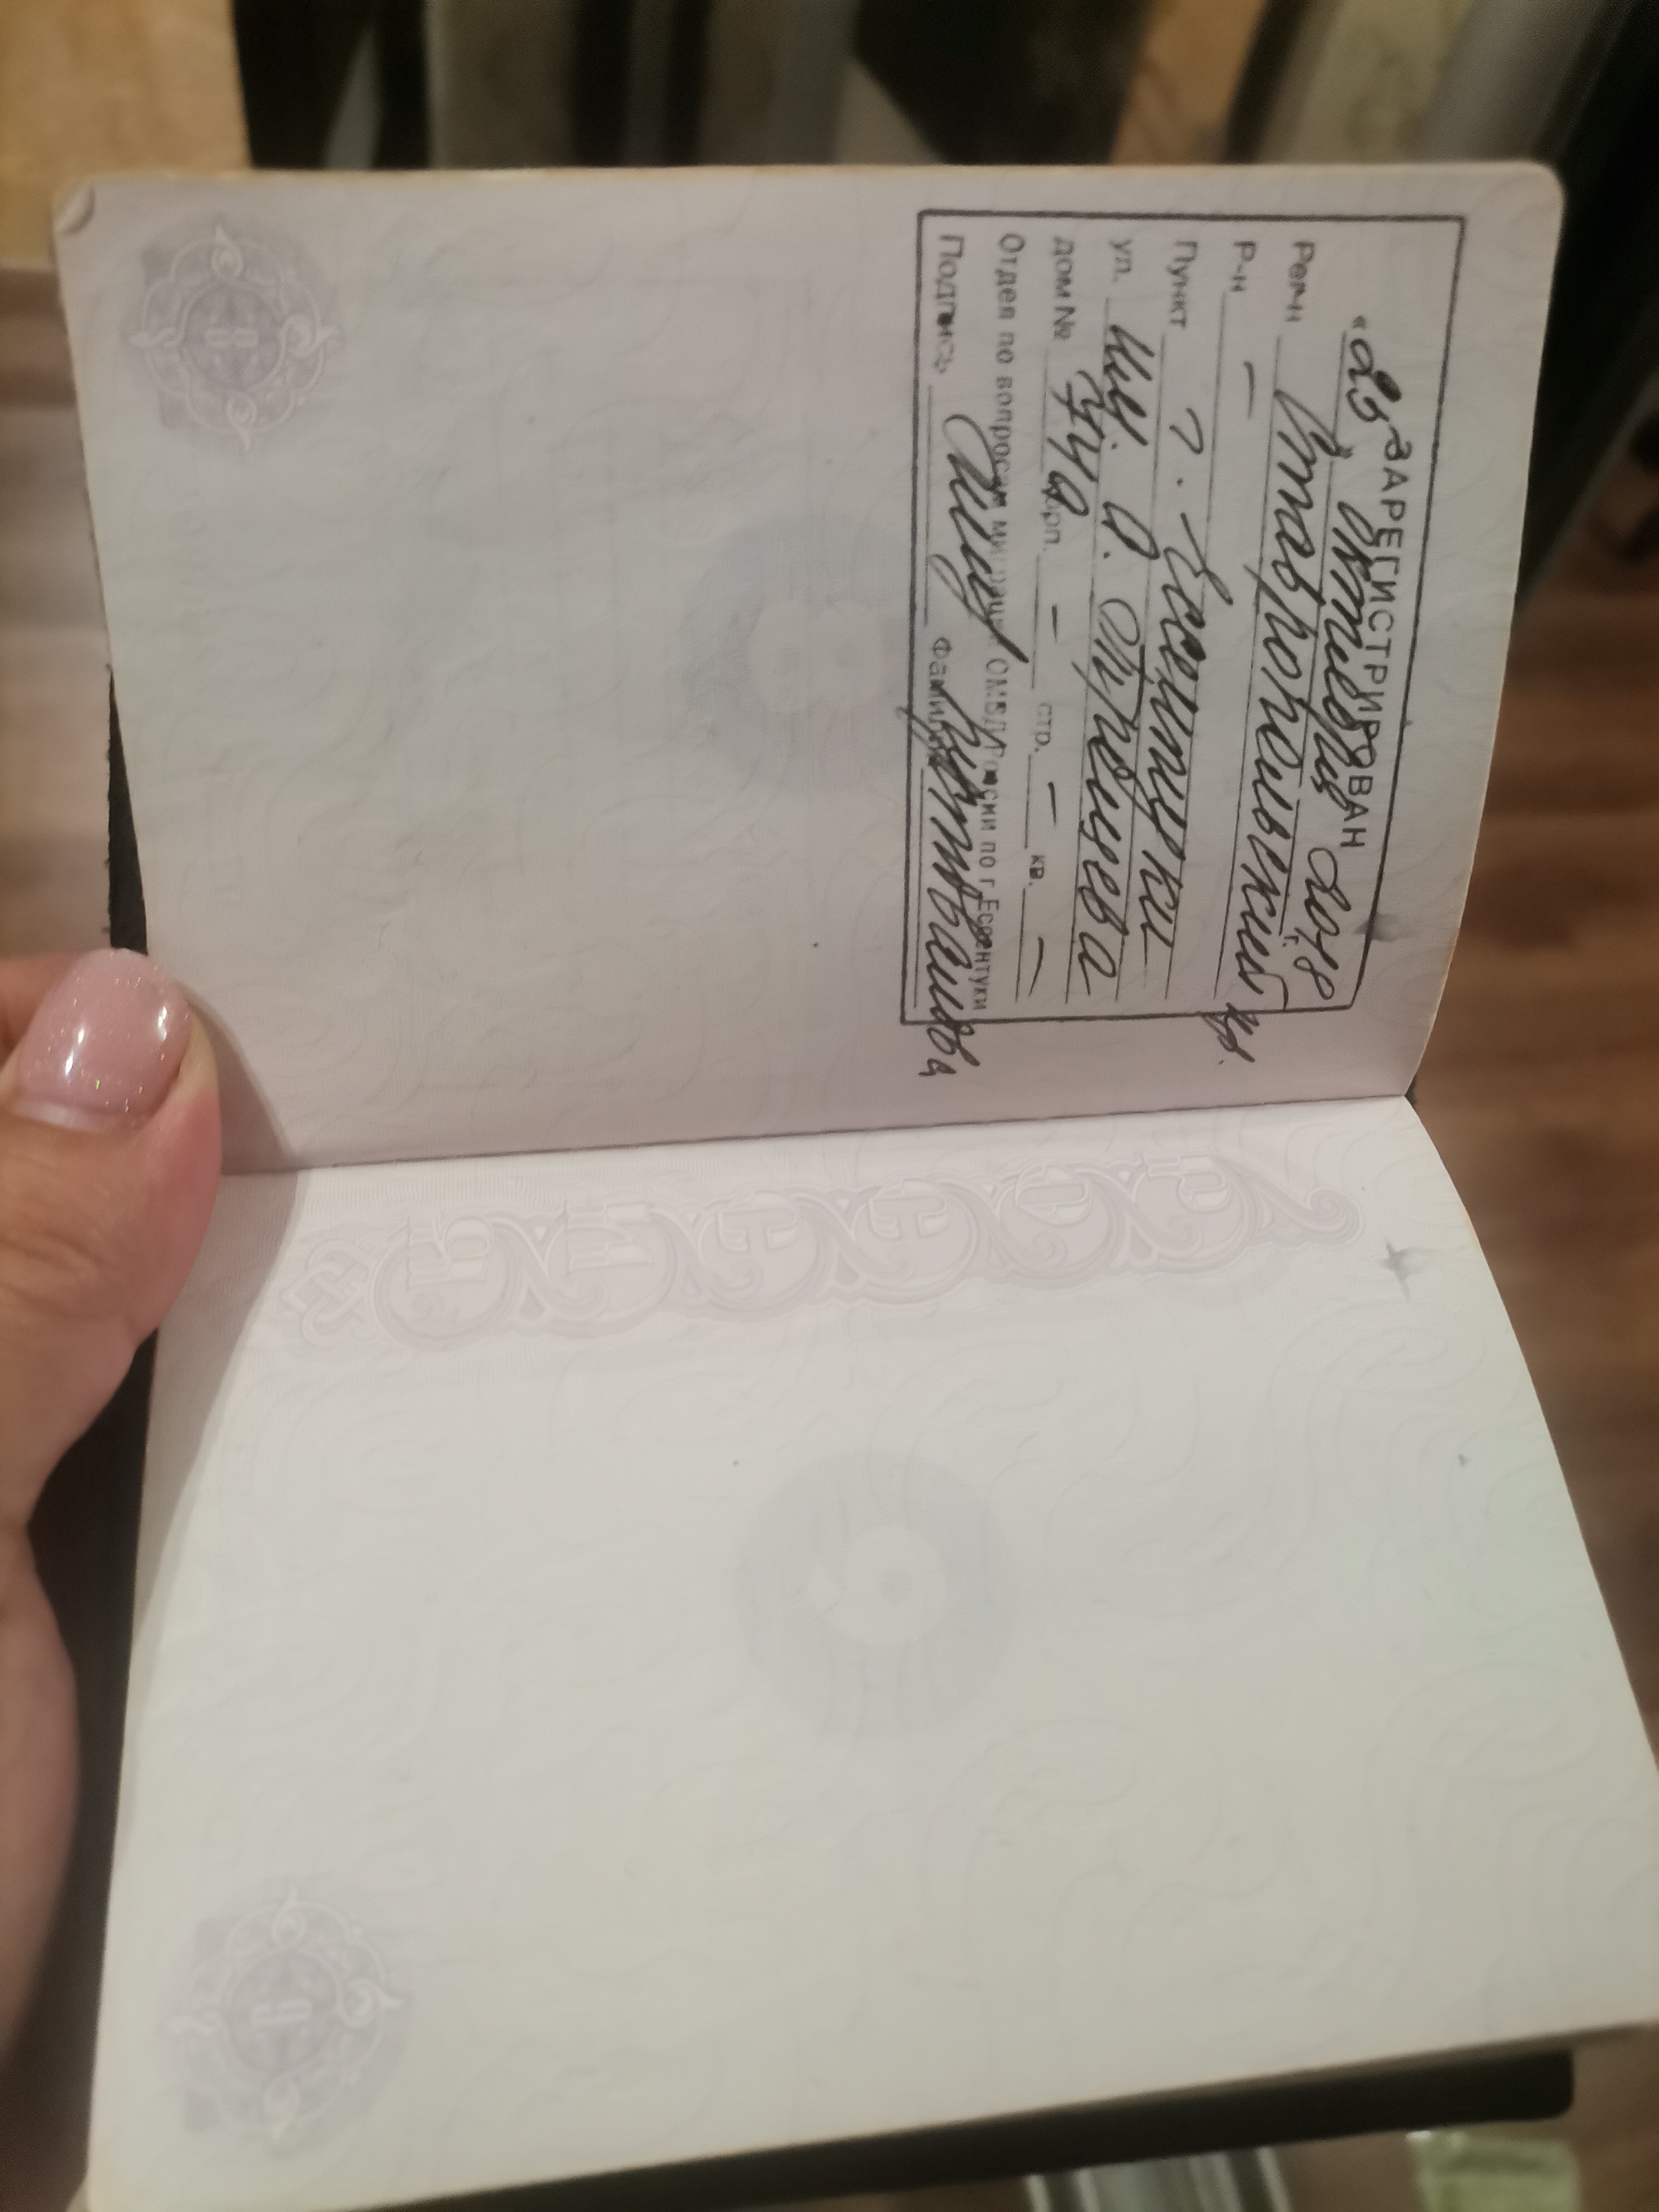 ЗАРЕГИСТРИРОВАН
«23» октября 2018 г.
Рег-н Ставропольский кр.
Р-н —
Пункт г. Ессентуки
ул.
дом № корп. — стр. — кв. —
Отдел по вопросам миграции ОМВД России по г. Ессентуки
Подпись Фамилия